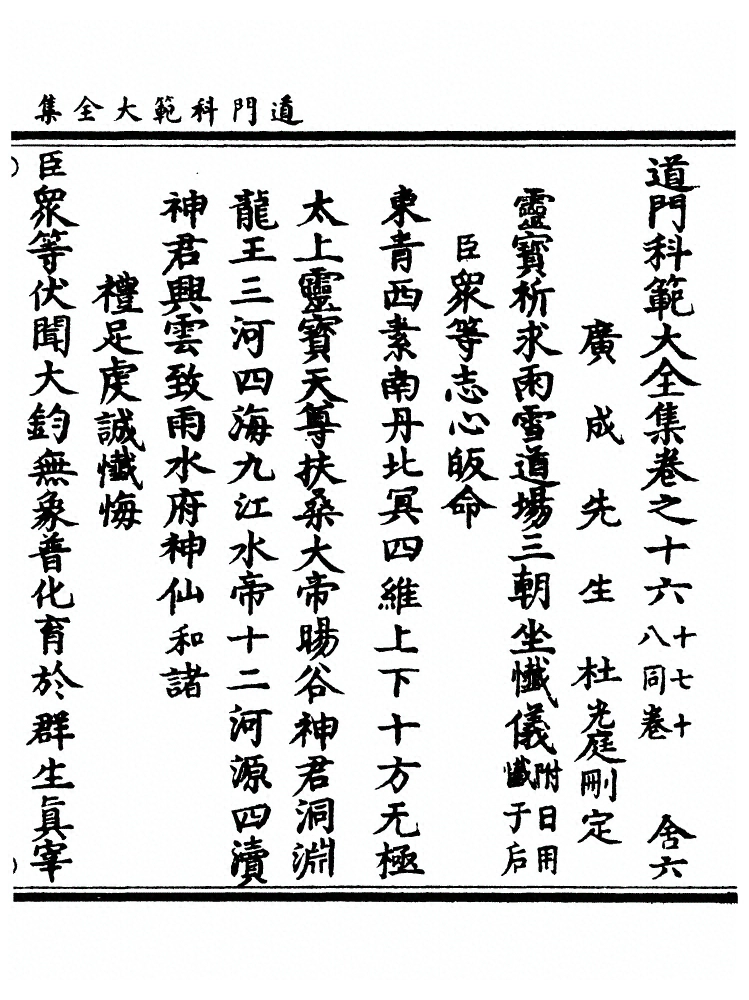 道門科範大全集
道門科範大全集卷之十六十七十八同卷 舍六
廣成先生杜光庭刪定
靈寶祈求雨雪道場三朝坐懺儀附日用懺于后
臣眾等志心皈命
東青西素南丹北冥四維上下十方无極
太上靈寶天尊扶桑大帝暘谷神君洞淵
龍王三河四海九江水帝十二河源四瀆
神君興雲致雨水府神仙和諸
禮足虔誠懺悔
臣眾等伏聞大鈞無象普化育於群生眞宰